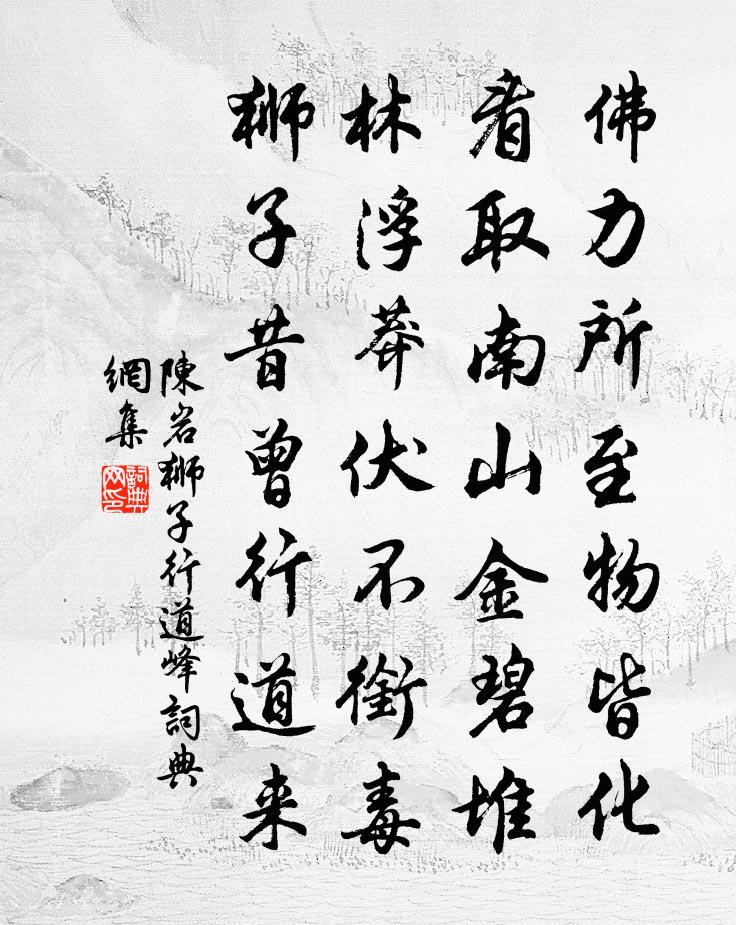 佛力所至物皆化
看取南山金碧堆
林浮莽伏不銜毒
獅子昔曾行道来
陳岩獅子行道峰詞典
網集
詞典
网印